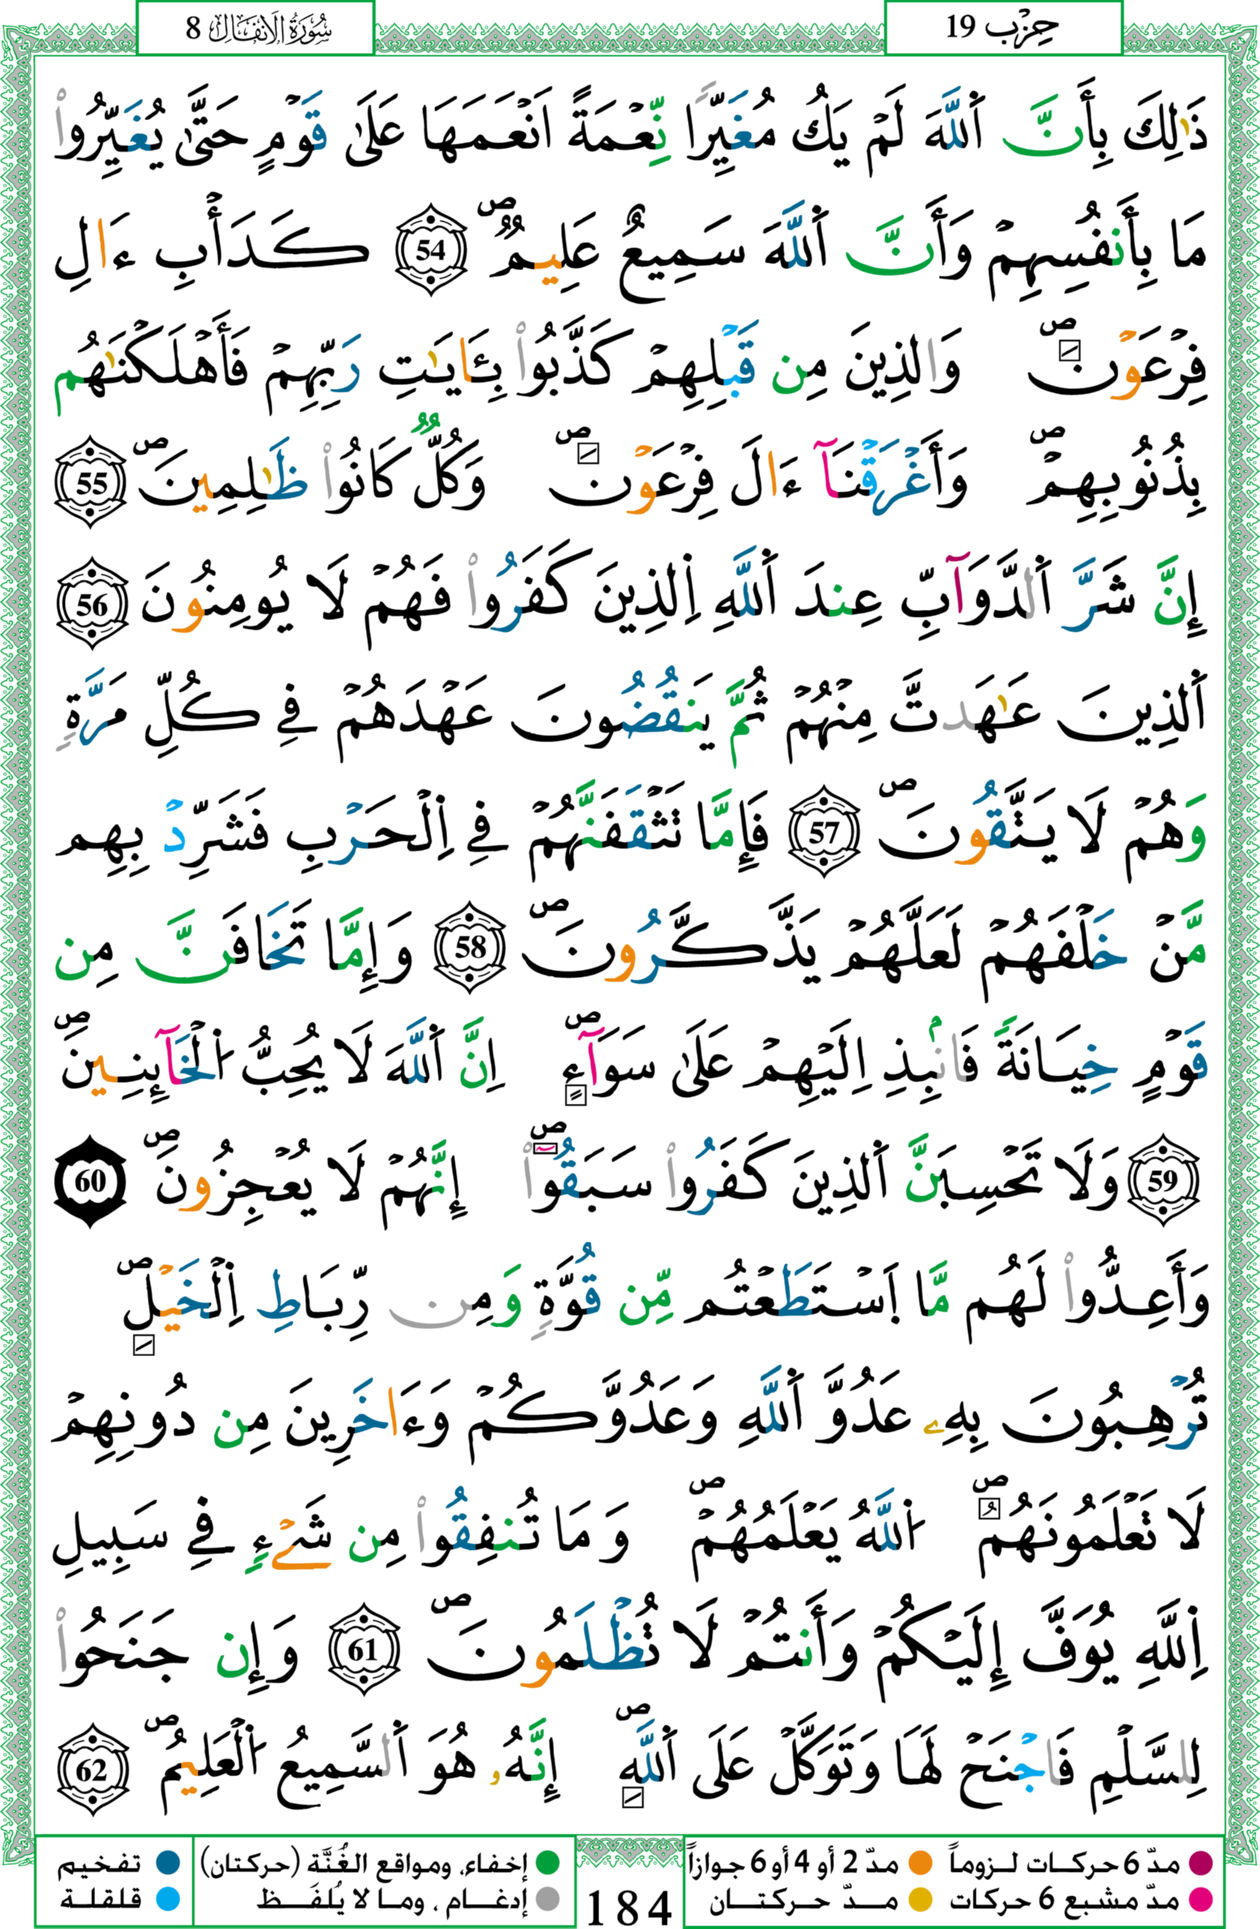 سُورَةُ الأَنفَالِ 8
حِزْب 19
ذَٰلِكَ بِأَنَّ اَ۬للَّهَ لَمْ يَكُ مُغَيِّراً نِّعْمَةً اَنْعَمَهَا عَلَىٰ قَوْمٍ حَتَّىٰ يُغَيِّرُواْ
مَا بِأَنفُسِهِمْ وَأَنَّ اَ۬للَّهَ سَمِيعٌ عَلِيمٌ ۖ 54 كَدَأْبِ ءَالِ
فِرْعَوْنَ ۖ وَالذِينَ مِن قَبْلِهِمْ كَذَّبُواْ بِـَٔايَٰتِ رَبِّهِمْ فَأَهْلَكْنَٰهُم
بِذُنُوبِهِمْ ۖ وَأَغْرَقْنَآ ءَالَ فِرْعَوْنَ ۖ وَكُلٌّ كَانُواْ ظَٰلِمِينَ ۖ 55
إِنَّ شَرَّ اَ۬لدَّوَآبِّ عِندَ اَ۬للَّهِ اِ۬لذِينَ كَفَرُواْ فَهُمْ لَا يُومِنُونَ 56
اَ۬لذِينَ عَٰهَدتَّ مِنْهُمْ ثُمَّ يَنقُضُونَ عَهْدَهُمْ فِے كُلِّ مَرَّةٍ
وَهُمْ لَا يَتَّقُونَ ۖ 57 فَإِمَّا تَثْقَفَنَّهُمْ فِے اِ۬لْحَرْبِ فَشَرِّدْ بِهِم
مَّنْ خَلْفَهُمْ لَعَلَّهُمْ يَذَّكَّرُونَ ۖ 58 وَإِمَّا تَخَافَنَّ مِن
قَوْمٍ خِيَانَةً فَانۢبِذِ اِلَيْهِمْ عَلَىٰ سَوَآءٍ ۖ اِنَّ اَ۬للَّهَ لَا يُحِبُّ اُ۬لْخَآئِنِينَ ۖ
59 وَلَا تَحْسِبَنَّ اَ۬لذِينَ كَفَرُواْ سَبَقُوٓاْ ۖ إِنَّهُمْ لَا يُعْجِزُونَ ۖ 60
وَأَعِدُّواْ لَهُم مَّا اَ۪سْتَطَعْتُم مِّن قُوَّةٍ وَمِن رِّبَاطِ اِ۬لْخَيْلِ ۖ
تُرْهِبُونَ بِهِۦ عَدُوَّ اَ۬للَّهِ وَعَدُوَّكُمْ وَءَاخَرِينَ مِن دُونِهِمْ
لَا تَعْلَمُونَهُمُ ۖ اُ۬للَّهُ يَعْلَمُهُمْ ۖ وَمَا تُنفِقُواْ مِن شَےْءٍ فِے سَبِيلِ
اِ۬للَّهِ يُوَفَّ إِلَيْكُمْ وَأَنتُمْ لَا تُظْلَمُونَ ۖ 61 وَإِن جَنَحُواْ
لِلسَّلْمِ فَاجْنَحْ لَهَا وَتَوَكَّلْ عَلَى اَ۬للَّهِ ۖ إِنَّهُۥ هُوَ اَ۬لسَّمِيعُ اُ۬لْعَلِيمُ ۖ 62
مدّ 6 حركات لـزوماً مدّ 2 أو 4 أو 6 جوازاً إخفاء، ومواقع الغُنَّة (حركتان) تفخيم
مدّ مشبع 6 حركات مــدّ حركتــان إدغــام ، ومـا لا يُلفَـظ قلقلة
184